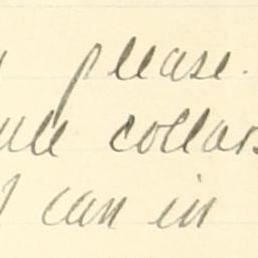 please.
collars
I can in